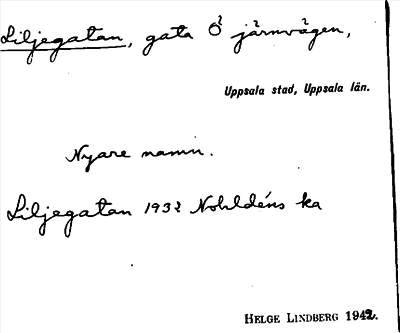 Liljegatan, gata Ö järnvägen,
Uppsala stad, Uppsala län.
Nyare namn.
Liljegatan 1932 Nohldéns ka
HELGE LINDBERG 1942.